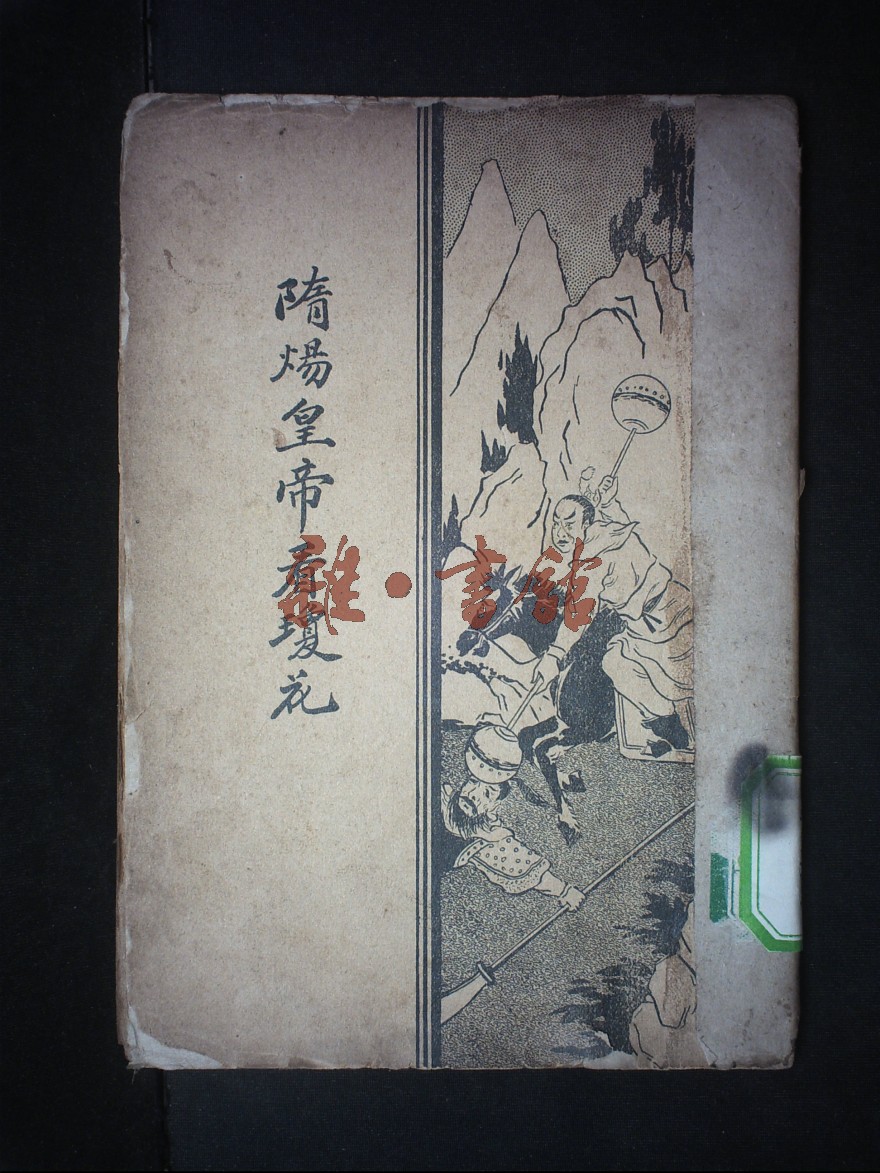 隋煬皇帝看瓊花
雜·書館